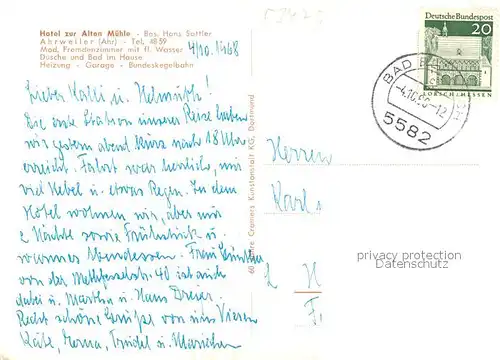 Hotel zur Alten Mühle - Bes. Hans Sattler
Ahrweiler (Ahr) - Tel. 4859
Mod. Fremdenzimmer mit fl. Wasser
Dusche und Bad im Hause
Heizung - Garage - Bundeskegelbahn
4/10. 1968
Lieber u. Helmuth!
Die erste Station unserer Reise haben
wir gestern abend kurz nach 18 Uhr
erreicht. Fahrt war herrlich, nur
viel Nebel u. etwas Regen. In dem
Hotel wohnen wir, aber nur
2 Nächte sowie Frühstück u.
warmes Abendessen. Frau
von der 40 ist auch
dabei u. Martha u. Hans
Recht schöne Grüße von uns Vieren
Käte, Erna, Trudel u. Mariechen
60 Jahre Cramers Kunstanstalt KG, Dortmund
Deutsche Bundespost
20
LORSCH/HESSEN
BAD
-4.10.68-12
5582
Herren
Karl
H
F
privacy protection
Datenschutz